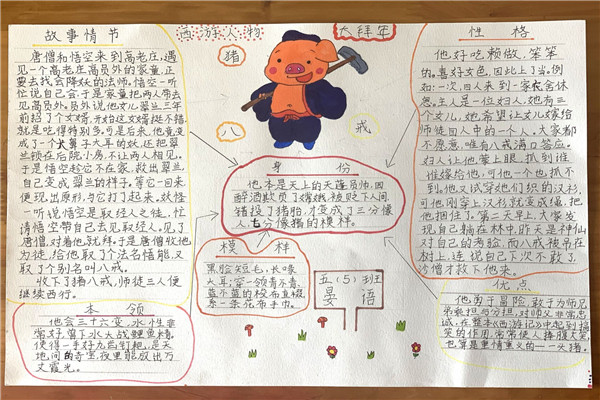 西游人物
大拜年
猪
八
戒
故事情节
唐僧和悟空来到高老庄，遇
见一个高老庄高员外的家童，正
要去找会降妖的法师。悟空一听
忙说自己会，于是家童把两人带去
见高员外。员外说他女儿翠兰三年
前招了个女婿，开始这女婿挺不错，
就是吃得特别多，可是后来，他竟变
成了一个大耳的妖，还把翠
兰锁在后院小房，不让两人相见。
于是悟空趁它不在家，救出翠兰
自己变成翠兰的样子，等它一回来
便现出原形，与它打了起来，妖怪
一听说悟空是取经人之徒，忙
请悟空带自己去见取经人，见了
唐僧，对着他就拜，于是唐僧收他
为徒，给他取了个法名悟能，又
取了个别名叫八戒。
收下了猪八戒，师徒三人便
继续西行。
本领
他会三十六变，水性非
常好，
使得一手好九齿钉耙，
丈霞光。
身份
他本是天上的天蓬元帅，因
醉酒欺负了嫦娥，被贬下人间，
猪投了猪胎，才变成了三分像
人，七分像猪的模样。
模样
黑脸短毛，长喙
大耳；穿一领青不青、
蓝不蓝的梭布直裰，
系一条花布手巾。
五（5）班
晏语
性格
他好吃懒做，笨笨
的，喜好女色，因此上了当。例
如：一次，四人来到一家农舍休
息，主人是一位妇人，她有三
个女儿，她希望让女儿嫁给
师徒四人中的一个人。大家都
不愿意，唯有八戒满口答应。
妇人让他蒙上眼，抓到谁
谁嫁给他，可他一个也抓不
到。他又试穿她们织的汗衫，
可他刚穿上，汗衫就变成绳，把
他捆住了。第二天早上，大家发
现自己躺在林中，昨天是神仙
对自己的考验，而八戒被吊在
树上，连说自己下次不敢了，
唐僧才救下他来。
优点
他勇于冒险，敢于为师兄
弟承担与分担，对师父非常忠
诚，在整本《西游记》中起到搞
笑的作用，常常使人捧腹大笑，
也算是重情重义的一头猪。